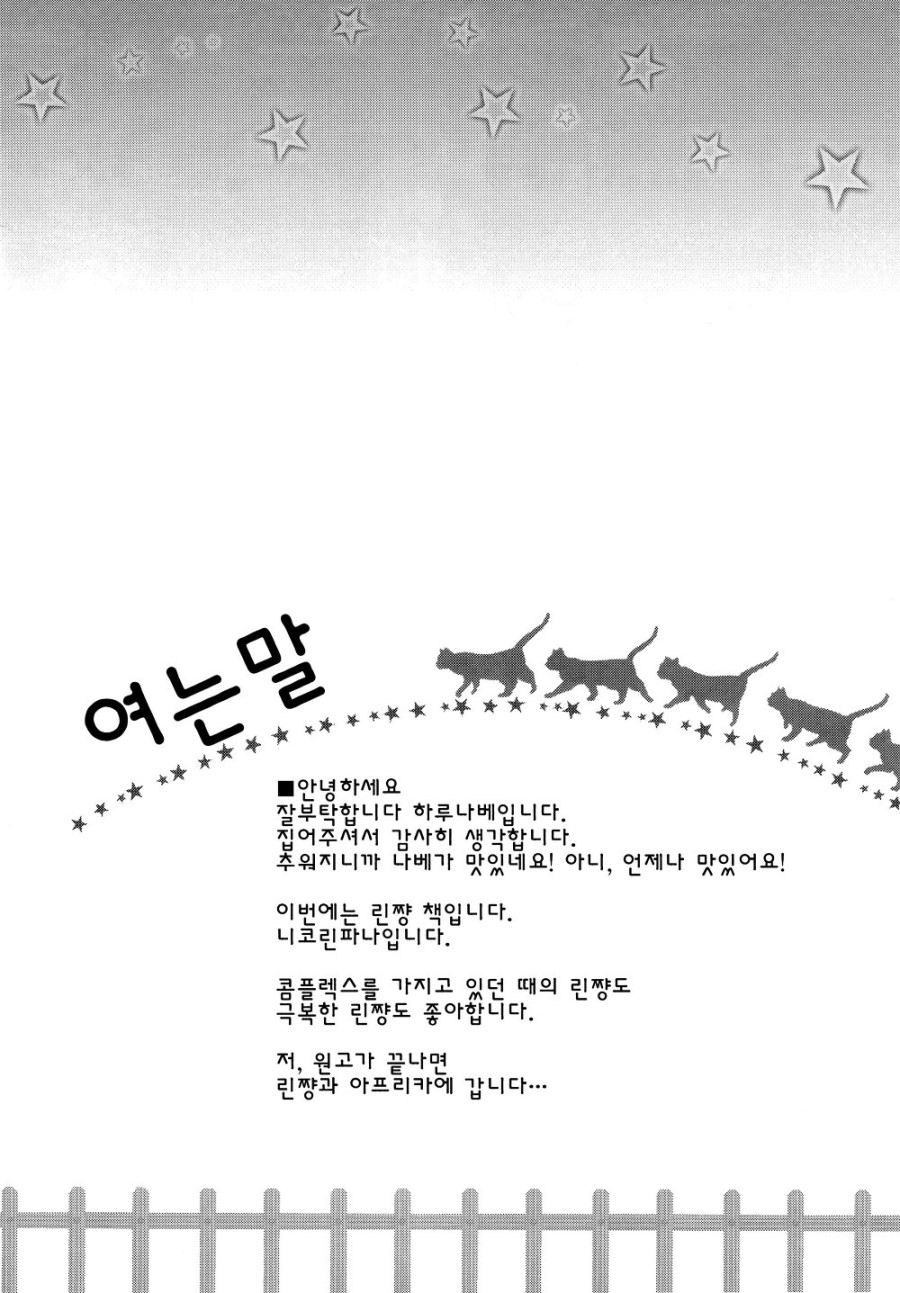 여는말
■안녕하세요
잘부탁합니다 하루나베입니다.
집어주셔서 감사히 생각합니다.
추워지니까 나베가 맛있네요! 아니, 언제나 맛있어요!
이번에는 린쨩 책입니다.
니코린파나입니다.
콤플렉스를 가지고 있던 때의 린쨩도
극복한 린쨩도 좋아합니다.
저, 원고가 끝나면
린쨩과 아프리카에 갑니다…